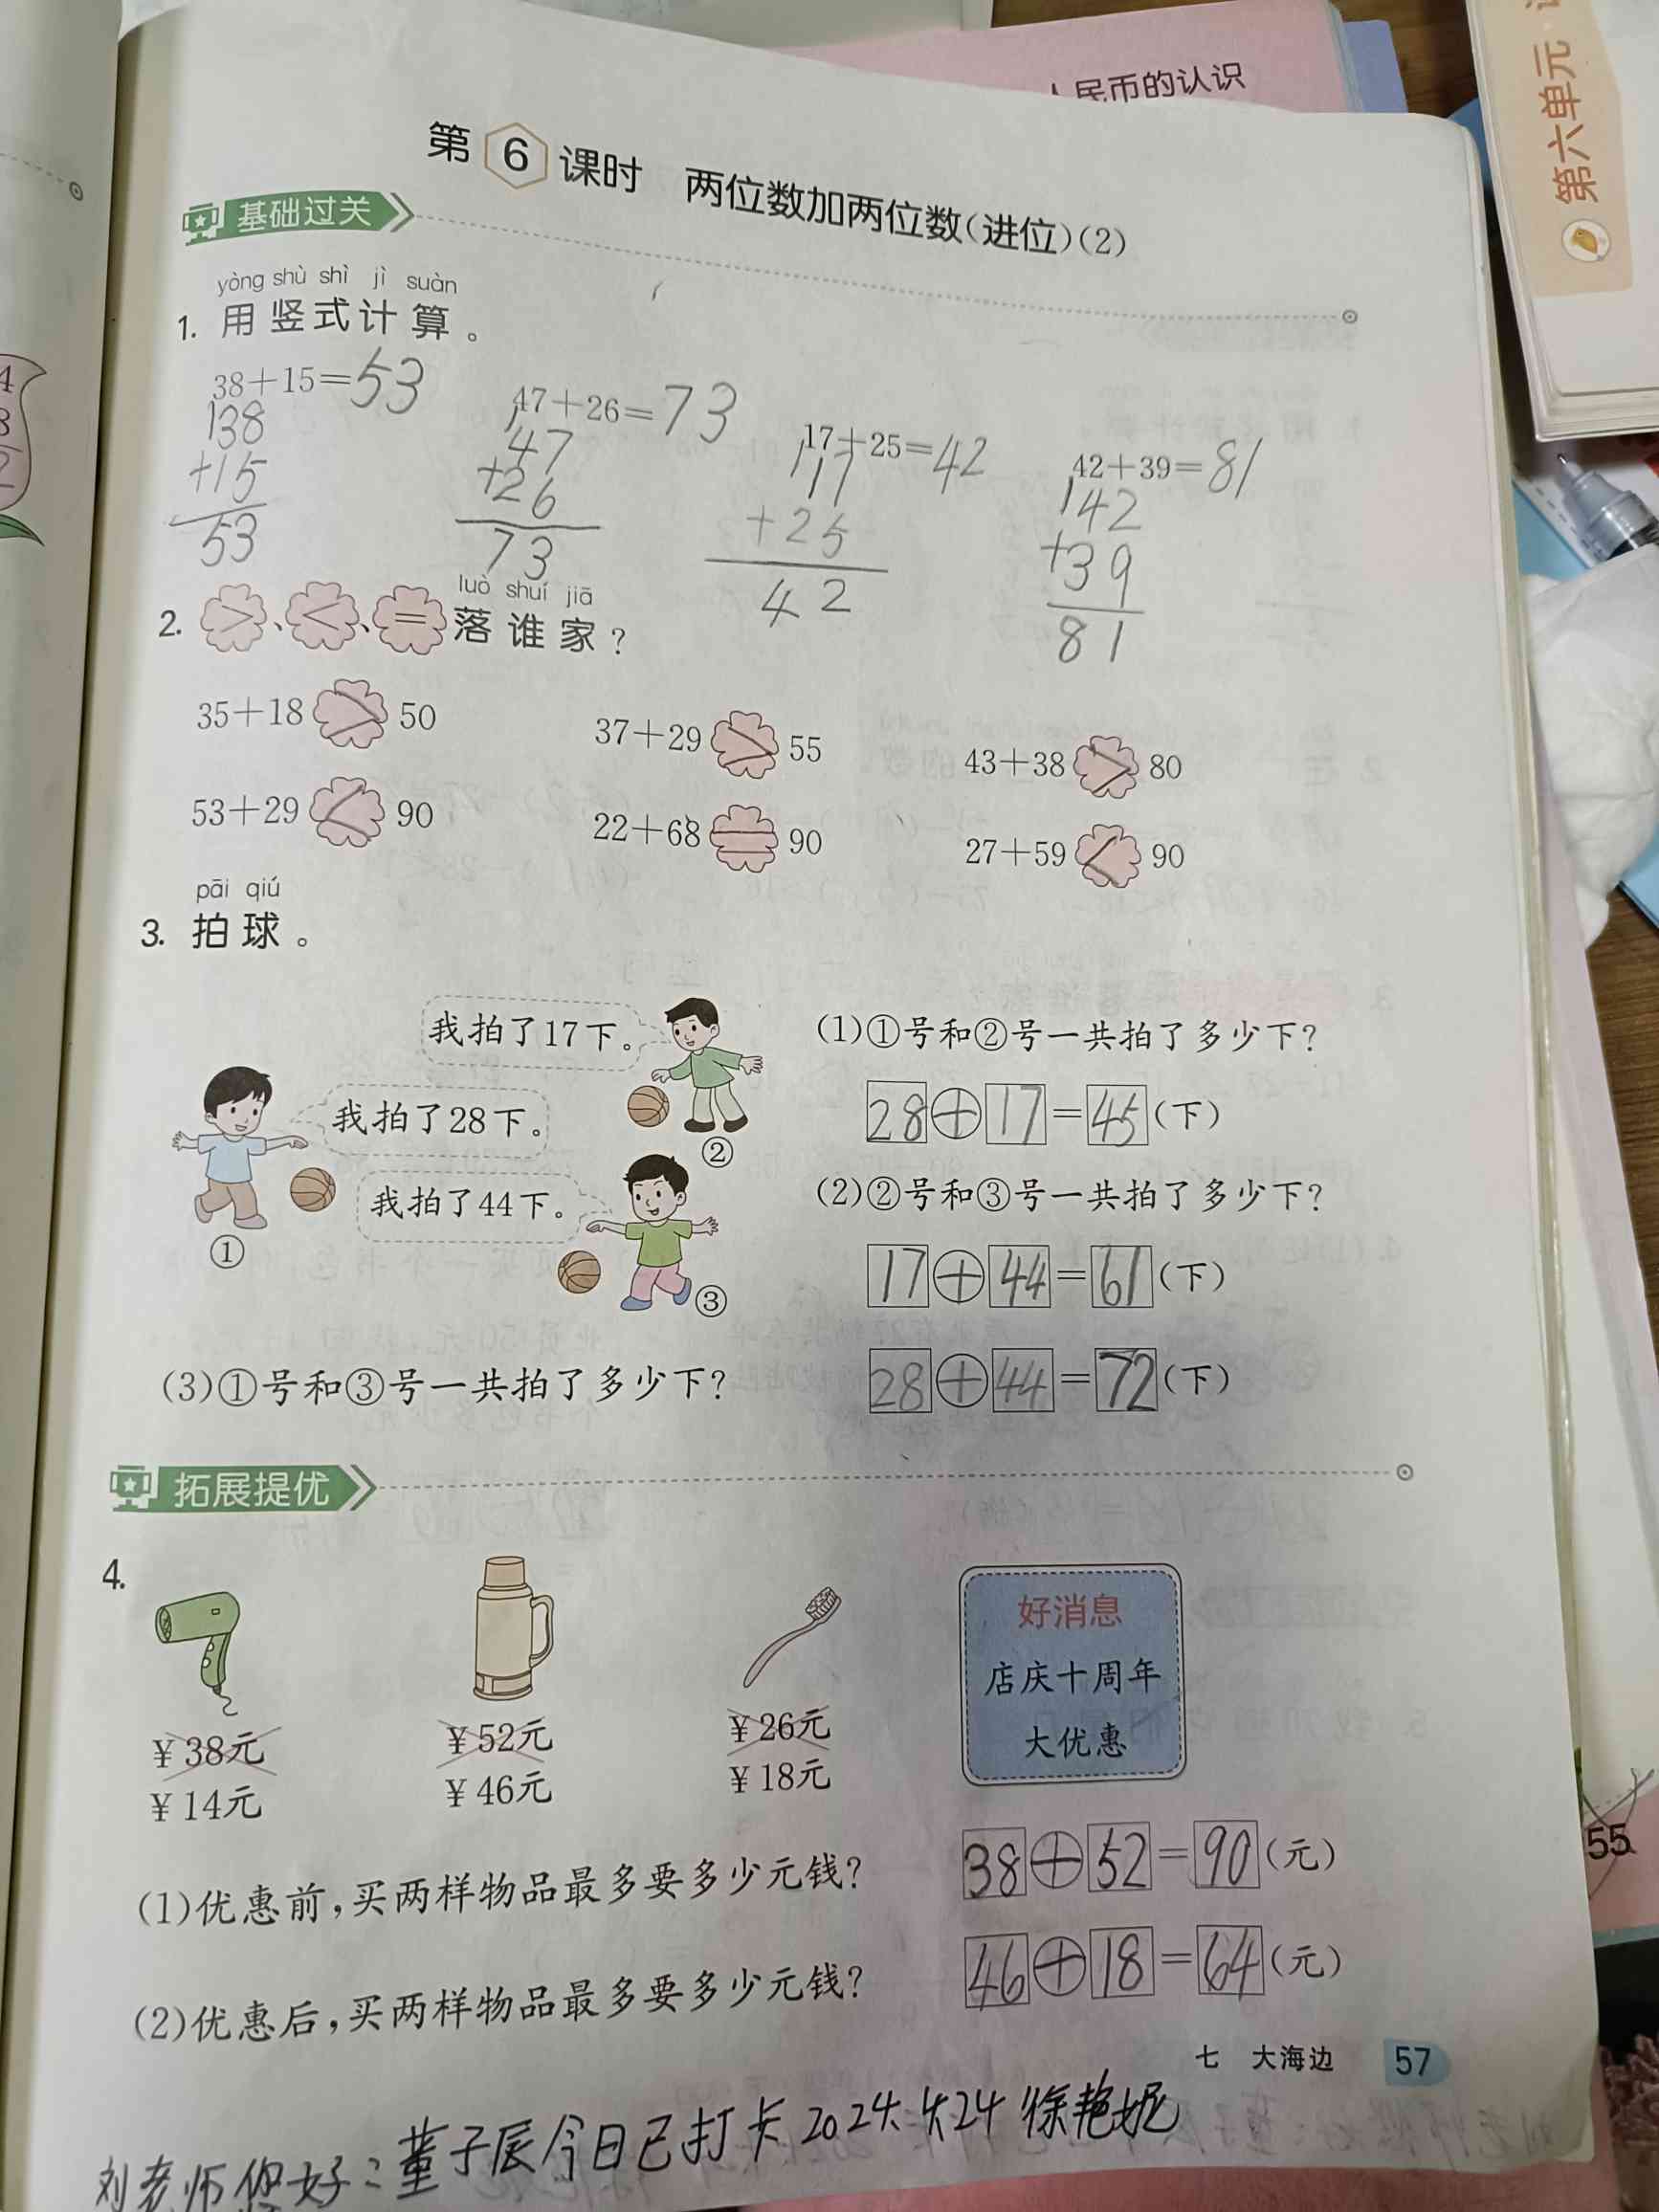 人民币的认识
第六单元
第6课时 两位数加两位数(进位)(2)
基础过关
yòng shù shì jì suàn
1. 用竖式计算。
38+15=53 47+26=73 17+25=42 42+39=81
138 147 117 142
+15 +26 +25 +39
53 73 42 81
luò shuí jiā
2. >、<、=落谁家?
35+18>50 37+29>55 43+38>80
53+29<90 22+68=90 27+59<90
pāi qiú
3. 拍球。
我拍了17下。
②
我拍了28下。
①
我拍了44下。
③
(1)①号和②号一共拍了多少下?
28+17=45(下)
(2)②号和③号一共拍了多少下?
17+44=61(下)
(3)①号和③号一共拍了多少下? 28+44=72(下)
拓展提优
4.
¥38元 ¥52元 ¥26元
¥14元 ¥46元 ¥18元
好消息
店庆十周年
大优惠
(1)优惠前,买两样物品最多要多少元钱? 38+52=90(元)
(2)优惠后,买两样物品最多要多少元钱? 46+18=64(元)
七 大海边 57
刘老师您好:董子辰今日已打卡2024.4.24 徐艳妮
55